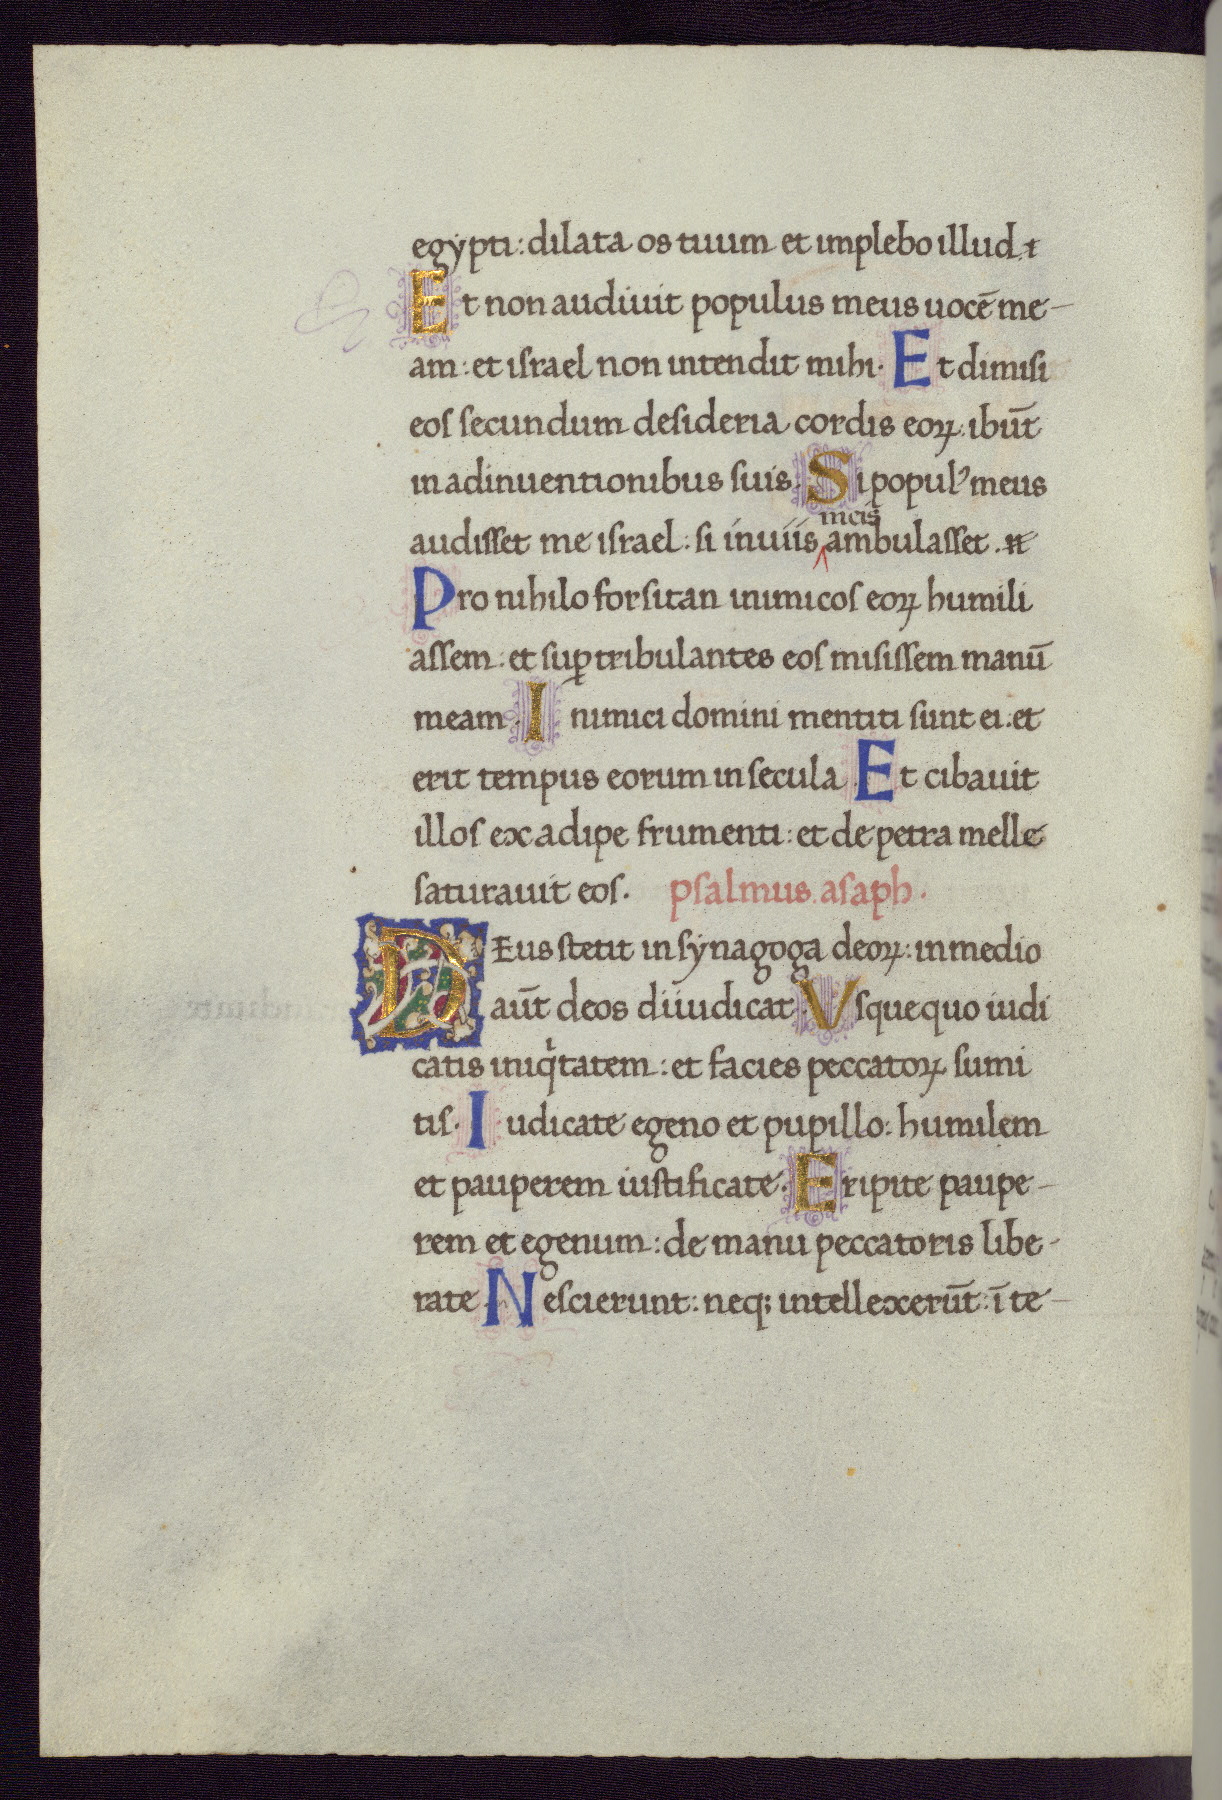 egypti: dilata os tuum et implebo illud.
Et non audiuit populus meus uocē me-
am: et israel non intendit mihi. Et dimisi
eos secundum desideria cordis eoꝝ: ibūt
in adinuentionibus suis. Si populꝰ meus
meis
audisset me israel: si in uiis ambulasset.
Pro nihilo forsitan inimicos eoꝝ humili
assem: et suꝑ tribulantes eos misissem manū
meam. Inimici domini mentiti sunt ei: et
erit tempus eorum in secula. Et cibauit
illos ex adipe frumenti: et de petra melle
saturauit eos. psalmus asaph.
DEus stetit in synagoga deoꝝ: in medio
aūt deos diiudicat. Vsquequo iudi
catis iniqͥtatem: et facies peccatoꝝ sumi
tis. Iudicate egeno et pupillo: humilem
et pauperem iustificate. Eripite paupe-
rem et egenum: de manu peccatoris libe-
rate. Nescierunt: neqꝫ intellexerūt: ī te-